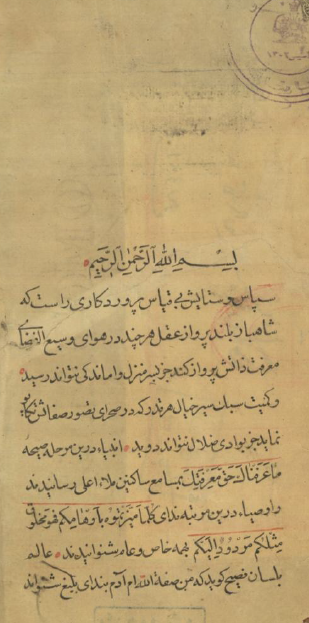 بسم الله الرحمن الرحيم
سپاس وستایش بی قیاس پروردکاری راست که
شاهباز بلند پرواز عقل هر چند در هوای وسیع الفضای
معرفت ذاتش پرواز کند جز بسر منزل واماندکی نتواند رسید
وکمیت سبک سیر خیال هر قدر که در صحرای تصور صفاتش تکاپو
نماید جز بوادی ضلال نتواند دوید انبیاء درین مرحله صیحه
ما عرفناك حق معرفتك بمسامع ساکنین ملاء اعلی رسانیدند
واوصیاء درین مرتبه ندای کلما میزتموه باوهامکم فهو مخلوق
مثلکم مردود الیکم بهمه خاص و عام شنوانیدند عالم
بلسان فصیح کوید که من صنعة الله ام آدم بندای بلیغ شنواند